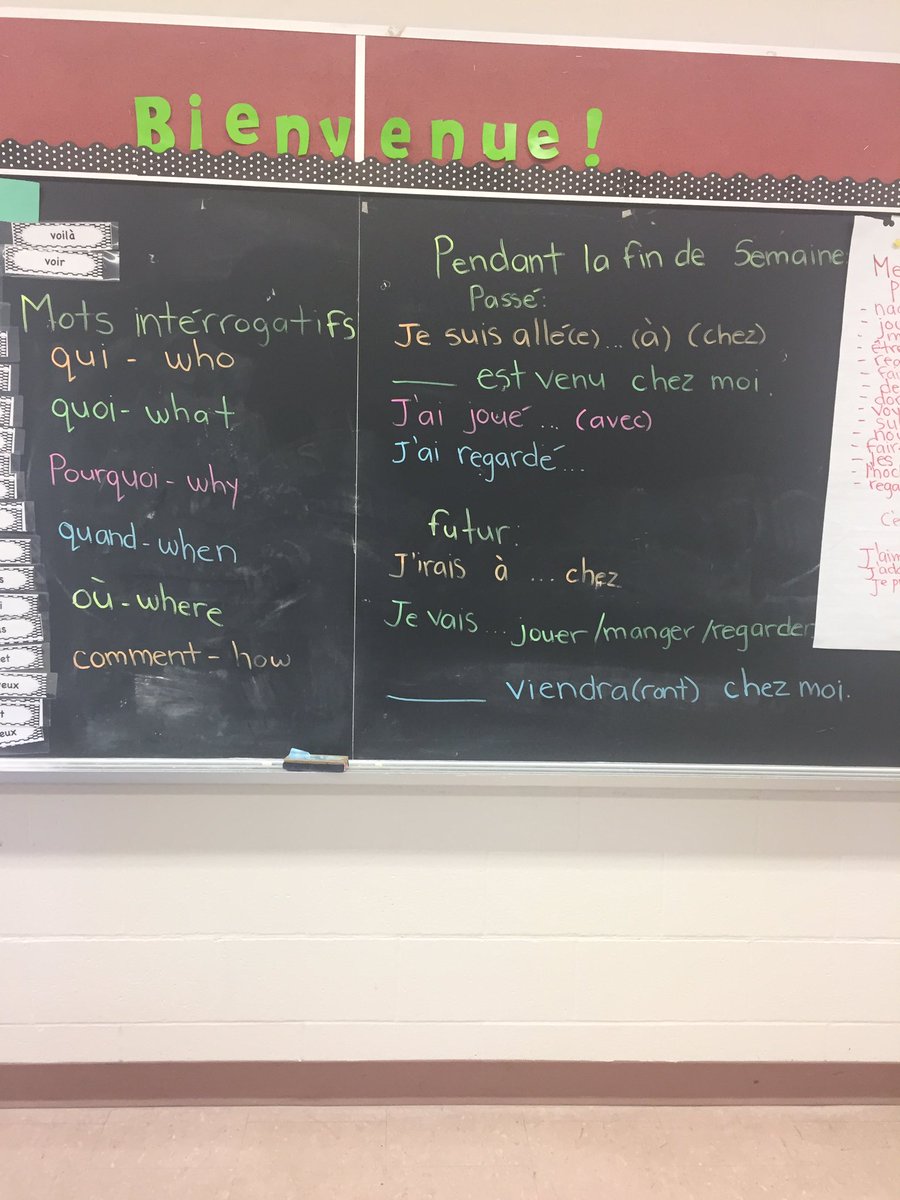 Bienvenue!
voilà
voir
Mots intérrogatifs
qui - who
quoi - what
Pourquoi - why
quand - when
où - where
comment - how
Pendant la fin de Semaine
Passé:
Je suis allé(e)... (à) (chez)
____ est venu chez moi
J'ai joué ... (avec)
J'ai regardé...
futur:
J'irais à ... chez
Je vais ... jouer/manger/regarder
____ viendra(ront) chez moi.